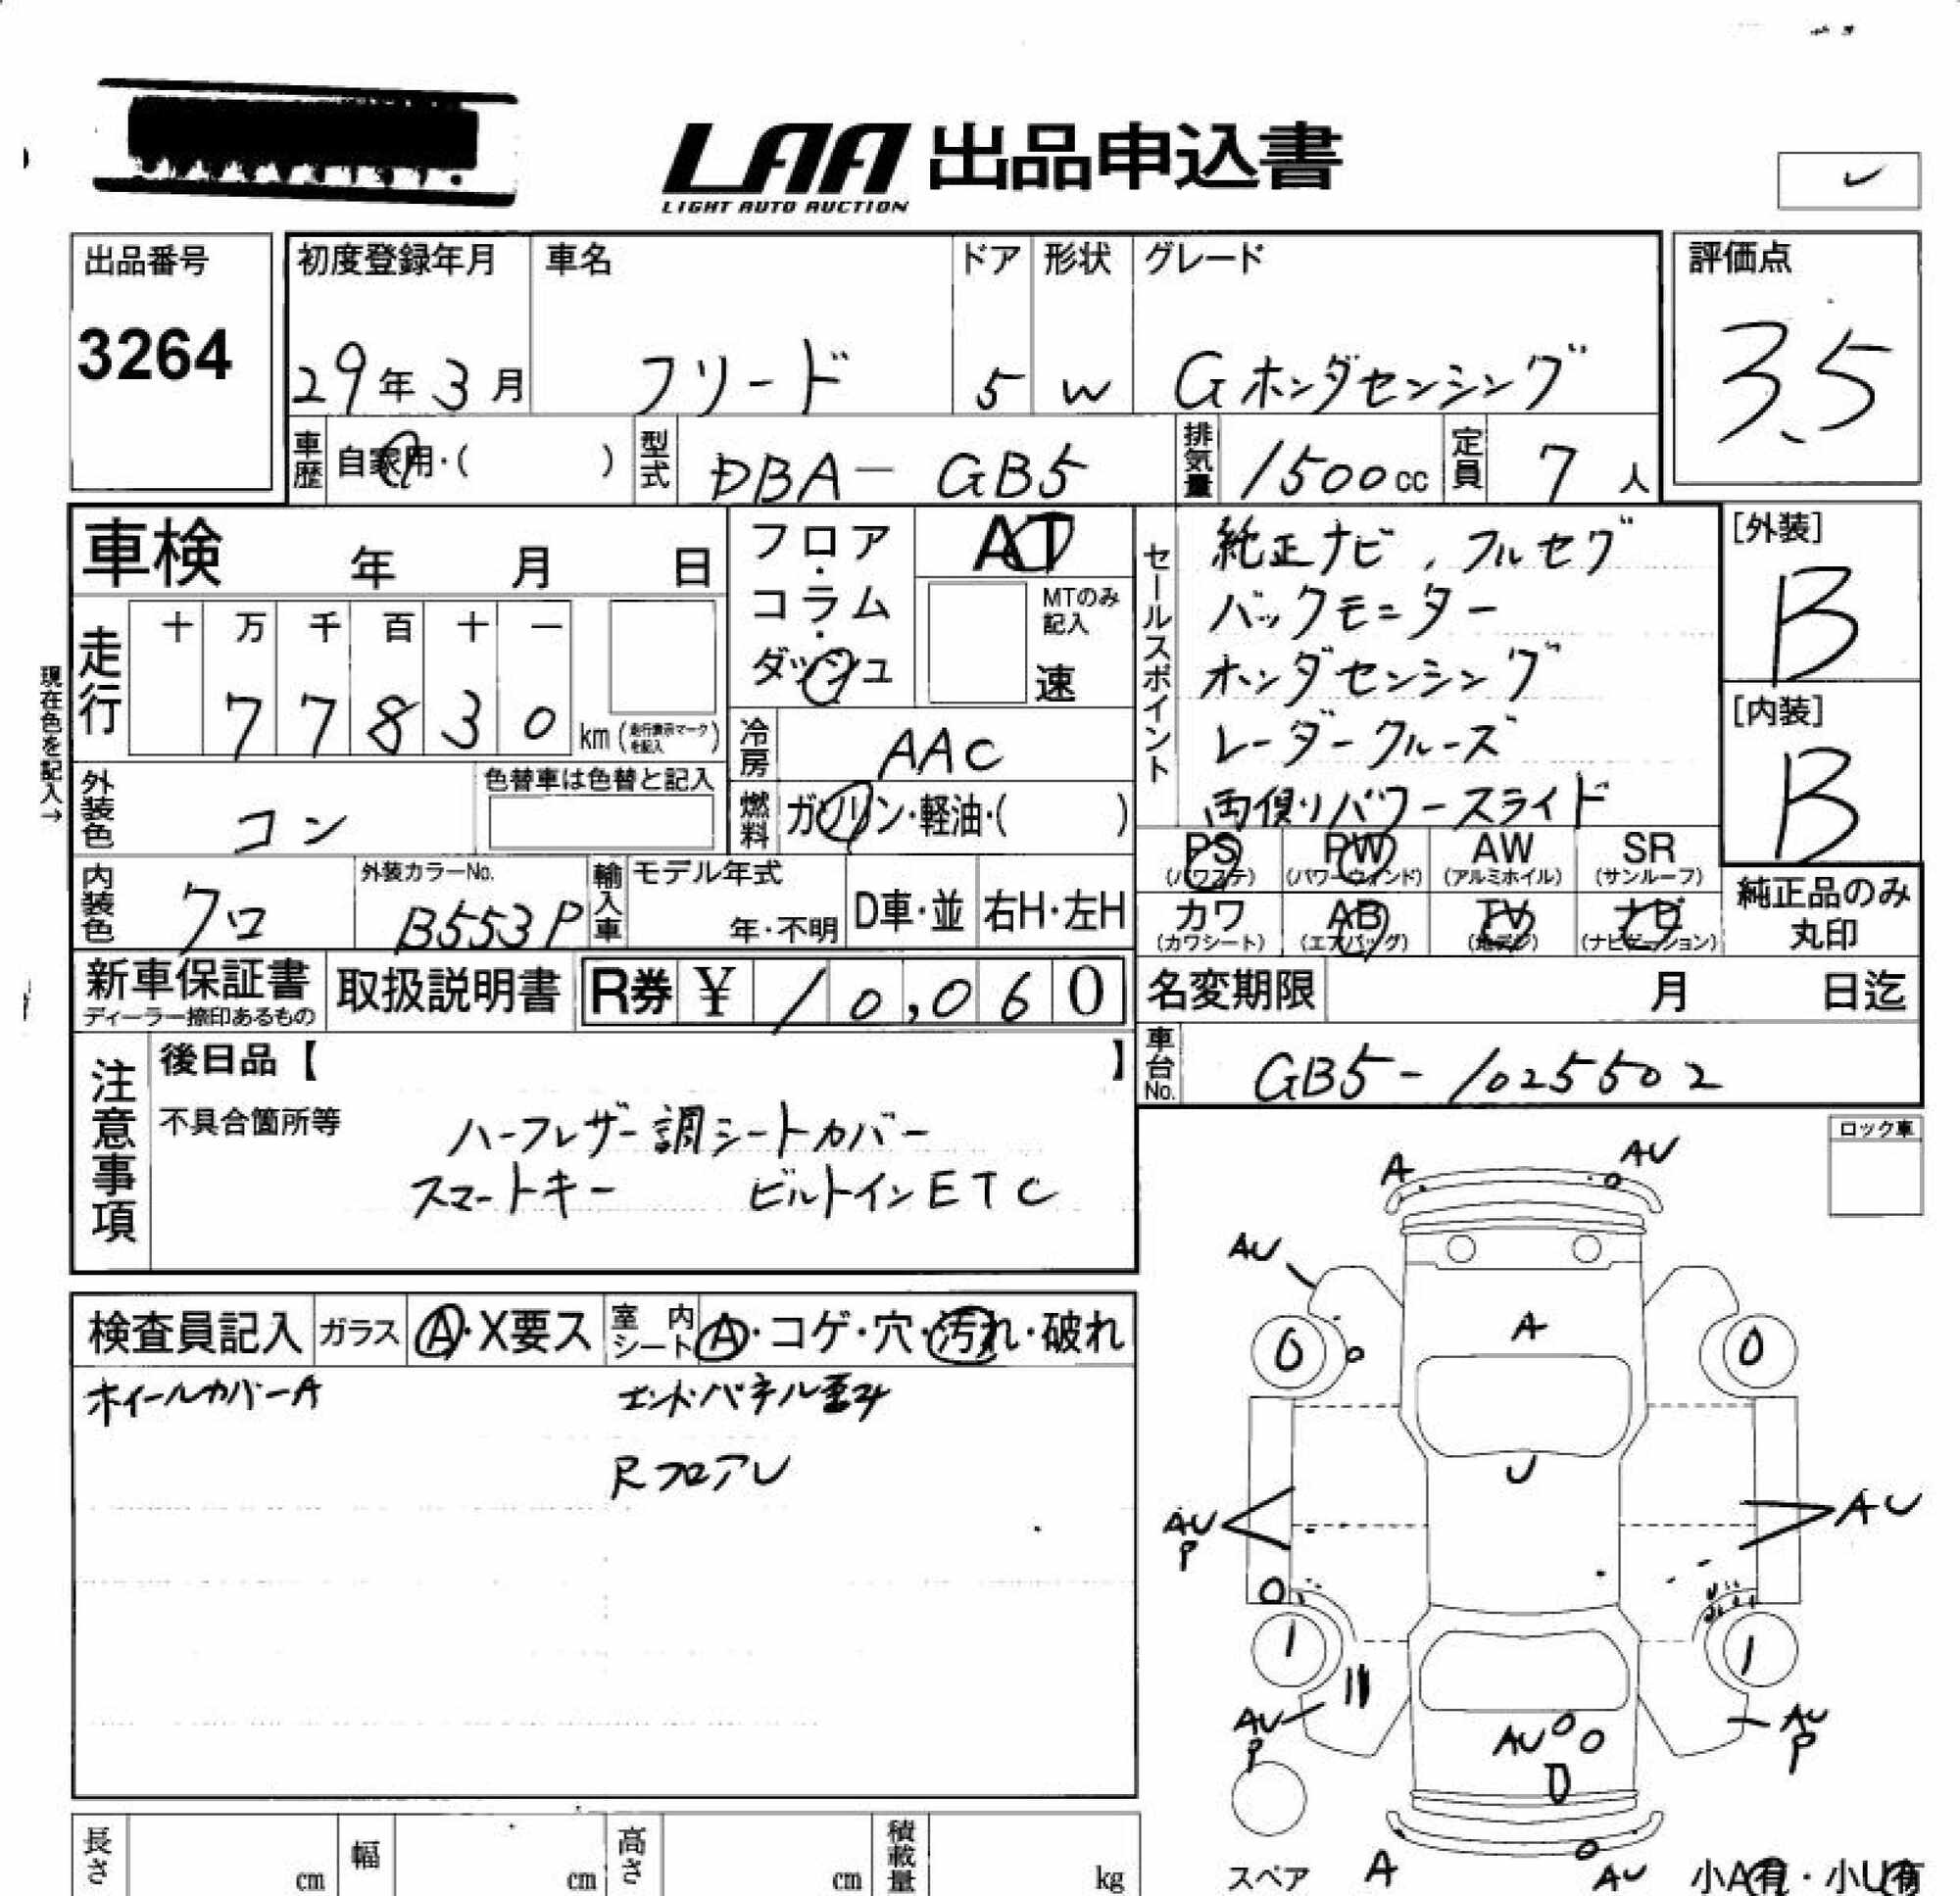 LAA 出品申込書
LIGHT AUTO AUCTION
出品番号
3264
初度登録年月
29年3月
車名
フリード
ドア
5
形状
W
グレード
Gホンダセンシング
評価点
3.5
車歴 自家用・( )
型式 DBA-GB5
排気量 1500cc
定員 7人
車検 年 月 日
フロア・コラム・ダッシュ
AT
MTのみ記入
速
走行 十 万 千 百 十 一
77830 km (走行表示マークを記入)
現在色を記入→
冷房 AAC
外装色 コン
色替車は色替と記入
燃料 ガソリン・軽油・( )
内装色 クロ
外装カラーNo. B553P
輸入車 モデル年式 年・不明 D車・並 右H・左H
セールスポイント
純正ナビ, フルセグ
バックモニター
ホンダセンシング
レーダークルーズ
両側パワースライド
[外装]
B
[内装]
B
PS (パワステ) PW (パワーウィンド) AW (アルミホイル) SR (サンルーフ)
カワ (カワシート) AB (エアバッグ) TV (地デジ) ナビ (ナビゲーション)
純正品のみ丸印
新車保証書 ディーラー捺印あるもの
取扱説明書
R券 ¥ 10,060
名変期限 月 日迄
車台No. GB5-1025502
注意事項
後日品【 】
不具合箇所等
ハーフレザー調シートカバー
スマートキー ビルトインETC
ロック車
検査員記入 ガラス A・X要ス 室内シート A・コゲ・穴・汚れ・破れ
ホイールカバーA エンドパネル歪み
RフロアU
A AU
AU
A
0 0
U
AU P
AU
1 1
AU P
AU P
AU
D
スペア
A AU
小A有・小U有
長さ cm 幅 cm 高さ cm 積載量 kg